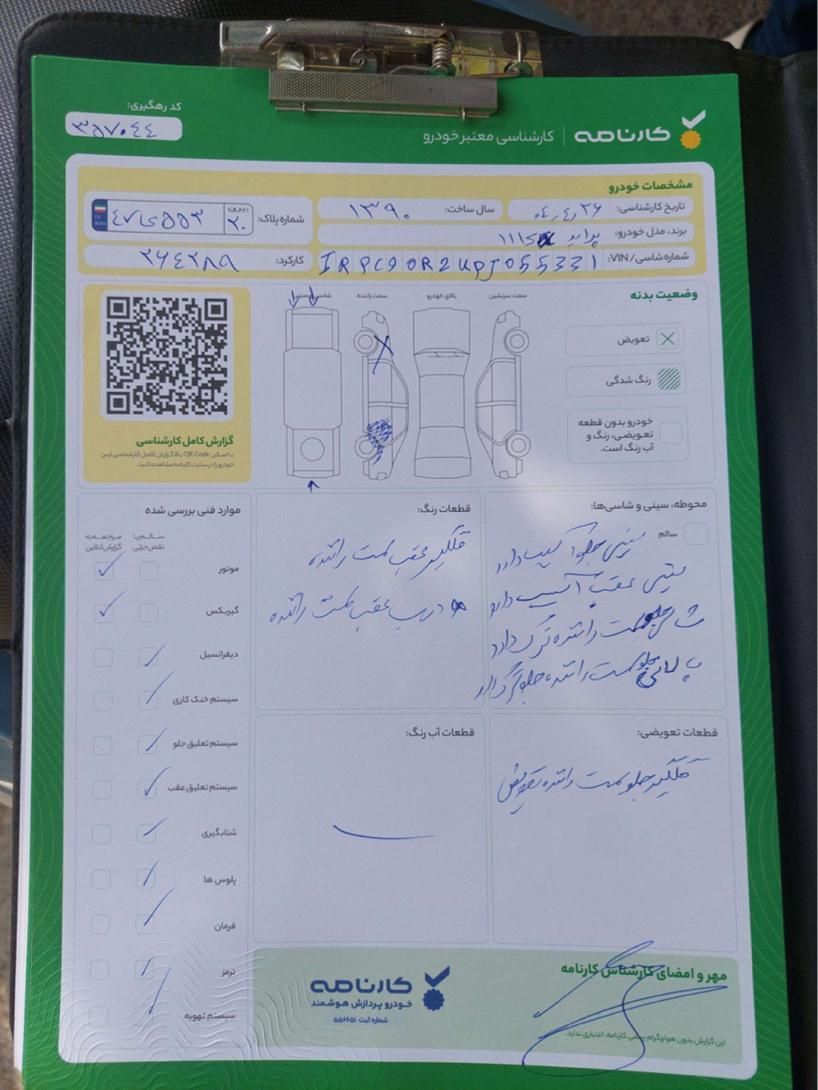 کد رهگیری:
۳۵۷۰۴۴
کارنامه | کارشناسی معتبر خودرو
مشخصات خودرو
تاریخ کارشناسی: ۰۴,۴,۲۶
سال ساخت: ۱۳۹۰
شماره پلاک: ۴۷ی۵۵۳ ایران ۲۰
برند، مدل خودرو: پراید ۱۱۱SX
شماره شاسی/VIN: IRPC90R2UPJ055331
کارکرد: ۲۶۴۲۸۹
وضعیت بدنه
سمت سرنشین
بالای خودرو
سمت راننده
تعویض
رنگ شدگی
خودرو بدون قطعه
تعویضی، رنگ و
آب رنگ است.
گزارش کامل کارشناسی
با اسکن QR Code بالا گزارش کامل کارشناسی این
خودرو را در سایت کارنامه مشاهده کنید.
محوطه، سینی و شاسی‌ها:
سالم
سینی جلو آسیب دارد
سینی عقب آسیب دارد
شاسی جلو سمت راننده ترک دارد
سمت راننده
قطعات رنگ:
گلگیر عقب سمت راننده
درب عقب سمت راننده
موارد فنی بررسی شده
سالم یا
نقص جزئی
مراجعه به
گزارش آنلاین
موتور
گیربکس
دیفرانسیل
سیستم خنک کاری
سیستم تعلیق جلو
سیستم تعلیق عقب
شتابگیری
پلوس ها
فرمان
ترمز
سیستم تهویه
قطعات تعویضی:
گلگیر جلو سمت راننده تعویض
قطعات آب رنگ:
مهر و امضای کارشناس کارنامه
این گزارش بدون هولوگرام رسمی کارنامه، اعتباری ندارد.
کارنامه
خودرو پردازش هوشمند
شماره ثبت ۵۵۶۶۵۱